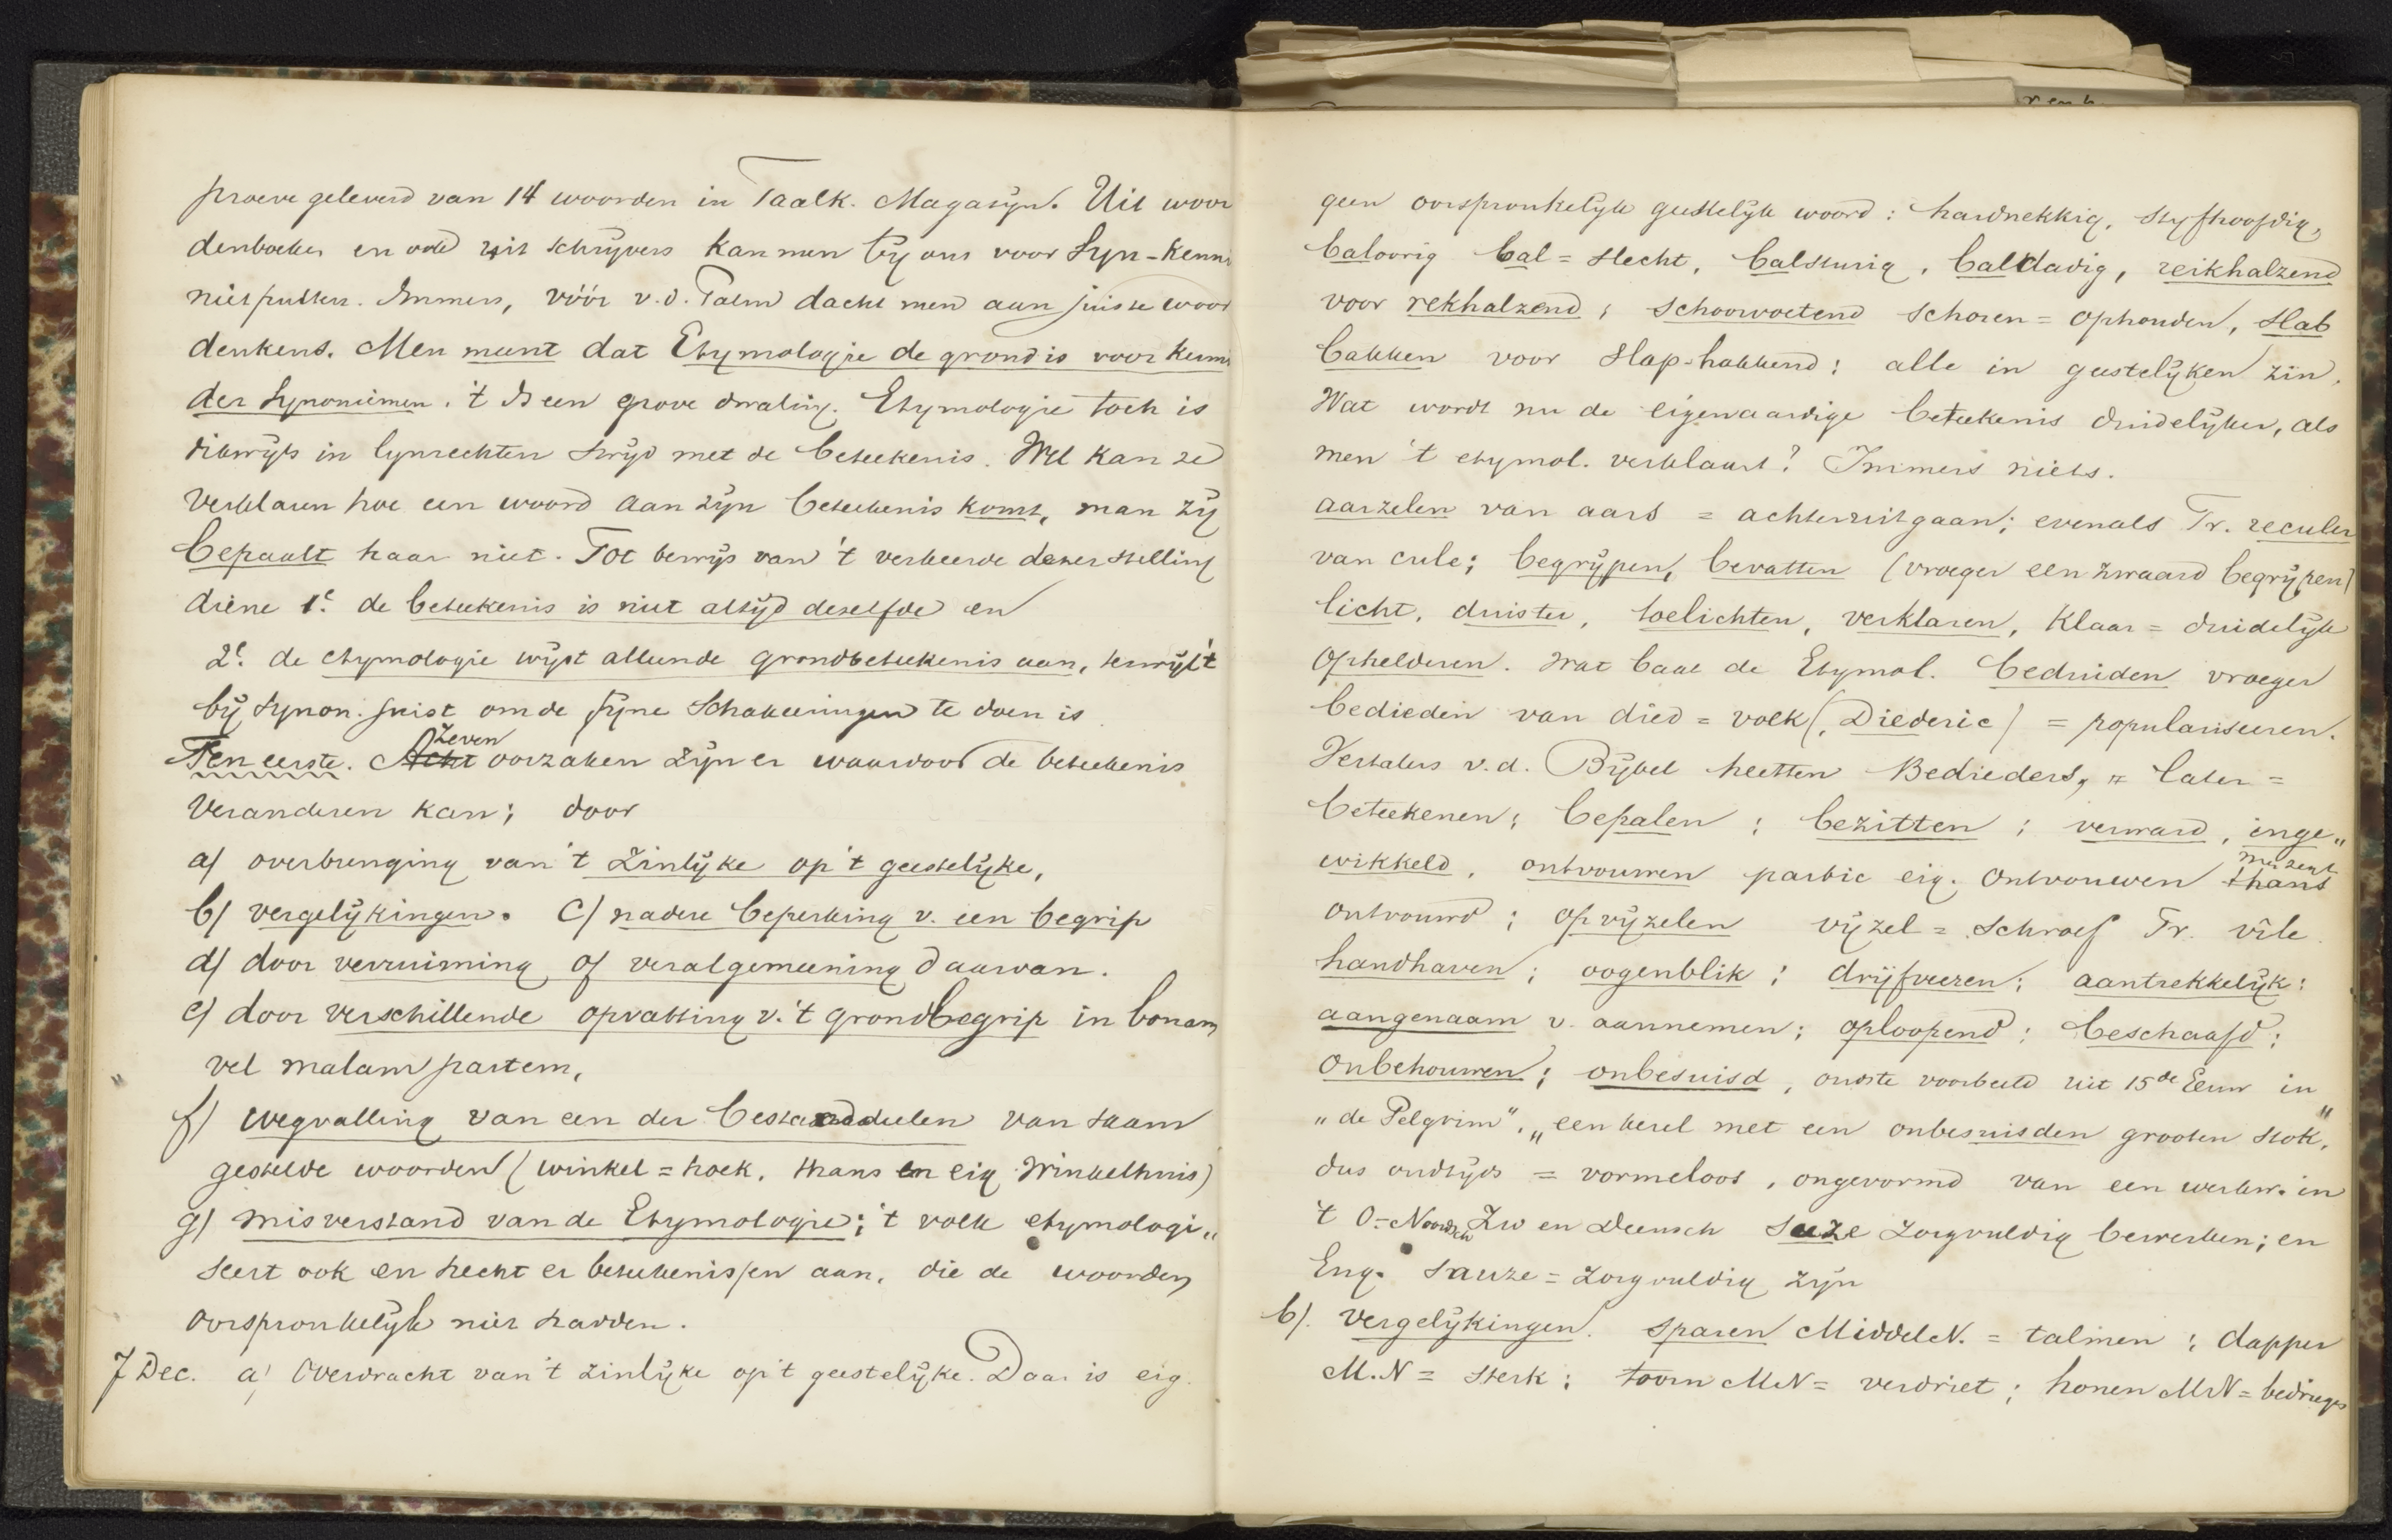 proeve geleverd van 14 woorden in Taalk. Magazyn. Uit woor
denboeken en ook uit schrijvers kan men by ons voor Syn-kenni
niet putten. Immers, vóór v.d. Palm dacht men aan juiste woor
denkeus. Men meent dat Etymologie de grond is voor kenni
der Synoniemen. 't Is een grove dwaling. Etymologie toch is
dikwijls in lynrechten stryd met de beteekenis. Wel kan ze
verklaren hoe een woord aan zyn beteekenis komt, maar zy
bepaalt haar niet. Tot bewys van 't verkeerde dezer stelling
diene 1e. de beteekenis is niet altyd dezelfde en
2e. de etymologie wyst alleen de grondbeteekenis aan, terwyl 't
by Synon. juist om de fyne Schakeeringen te doen is
Zeven
Ten eerste. Acht oorzaken zyn er waardoor de beteekenis
veranderen kan; door
a) overbrenging van 't zinlyke op 't geestelyke,
b) vergelykingen. c) nadere beperking v. een begrip
d) door verruiming of veralgemeening daarvan.
e) door verschillende opvatting v. 't grondbegrip in bonam
vel malam partem,
f) wegvalling van een der bestanddeelen van saam
gestelde woorden (winkel = hoek, thans en eig winkelhuis)
g) misverstand van de Etymologie; 't volk etymologi„
seert ook en hecht er beteekenissen aan, die de woorden
oorspronkelyk niet hadden.
7 Dec. a) Overdracht van 't zinlyke op 't geestelyke. Daar is eig.
geen oorspronkelyk geestelyk woord: hardnekkig, styfhoofdig,
baloorig bal = slecht, balsturig, baldadig, reikhalzend
voor rekhalzend; schoorvoetend schoren = ophouden, slab
bakken voor slap-hakkend: alle in geestelyken zin.
Wat wordt nu de eigenaardige beteekenis duidelyker, als
men 't etymol. verklaart? Immers niets.
aarzelen van aars = achteruitgaan; evenals Fr. reculer
van cule; begrypen, bevatten (vroeger een zwaard begrypen)
licht, duister, toelichten, verklaren, klaar = duidelyk
Ophelderen. Wat baat de Etymol. beduiden vroeger
bedieden van died = volk (Diederic) = populariseeren.
Vertalers v.d. Bybel heetten Bedieders, later =
beteekenen; bepalen; bezitten; verward, inge„
wikkeld, ontvouwen partic eig. Ontvouwen thans
ontvouwd; opvyzelen vyzel = schroef Fr. vile
handhaven; oogenblik; dryfveeren; aantrekkelyk:
aangenaam v. aannemen; oploopend; beschaafd;
onbehouwen; onbesuisd, oudste voorbeeld uit 15de Eeuw in
„de Pelgrim", „een kerel met een onbesuisden grooten stok",
dus oudtyds = vormeloos, ongevormd van een werkw. in
't O-Noordsch Zw en Deensch suze zorgvuldig bewerken; en
Eng. sauze = zorgvuldig zyn
b). vergelykingen. sparen MiddelN. = talmen; dapper
M.N = sterk; toorn MN = verdriet; honen MN = bedriegen